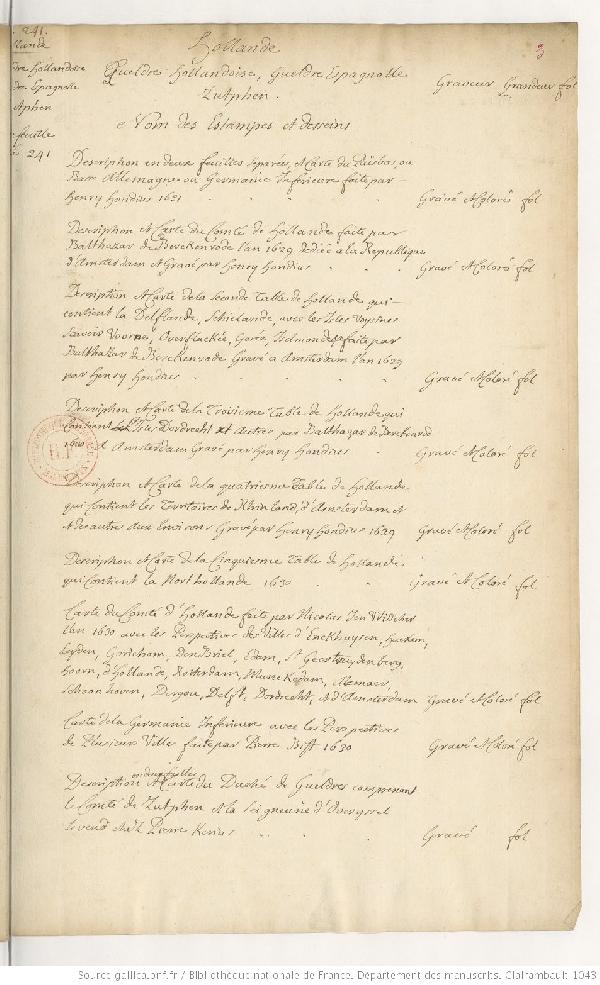 241.
Hollande
3
Gueldre Hollandoise, Gueldre Espagnolle
Zutphen.
Graveur Grandeur fol
e Nom des Estampes et desseins
241
Description en deux feuilles separées, et Carte du Païs bas, ou
Basse Allemagne ou Germanie Inferieure faite par
Henry Hondius 1631
Gravé et Coloré fol
Description et Carte du Comté de Hollande faite par
Balthazar de Berckenrode l'an 1629 dediée a la Republique
d'Amsterdam et Gravé par Henry Hondius
Gravé et Coloré fol
Description et Carte de la seconde Table de Hollande qui
contient la Delflande, Schielande, avec les Isles Voysines
sçavoir Voorne, Overflackée, Gorée, faite par
Balthazar de Berckenrode Gravé a Amsterdam l'an 1629
par Henry Hondius
Gravé et Coloré fol
Description et Carte de la Troisieme Table de Hollande qui
Contient Dordrecht et autres par Balthazar de Berckenrode
a Amsterdam Gravé par Henry Hondius
Gravé et Coloré fol
Description et Carte de la quatriesme Table de Hollande
qui Contient les Territoires de Rhinland, d'Amsterdam et
et des autres aux Environs Gravé par Henry Hondius 1629
Gravé et Coloré fol
Description et Carte de la Cinquiesme Table de Hollande
qui Contient la Northollande 1630
Gravé et Coloré fol
Carte du Comté d'Hollande faite par Nicolas Jean Visscher
l'an 1630 avec les Perspectives des Villes d'Enckhuysen, Haerlem,
Leyden, Gorichom, Den Briel, Edam, St Geertruydenberg,
Hoorn, d'Hollande, Rotterdam, Munikedam, Alcmaer,
Schoonhoven, Dergou, Delft, Dordrecht, et d'Amsterdam
Gravé et Coloré fol
Carte de la Germanie Inferieure avec les Perspectives
de Plusieurs Villes faite par Pierre 1630
Gravé et Coloré fol
Description en deux feuilles et Carte du Duché de Gueldres comprenant
le Comté de Zutphen et la Seigneurie d'Overyssel
se vend chez Pierre Kerius
Gravé fol
Source gallica.bnf.fr / Bibliothèque nationale de France. Département des manuscrits. Clairambault. 1043